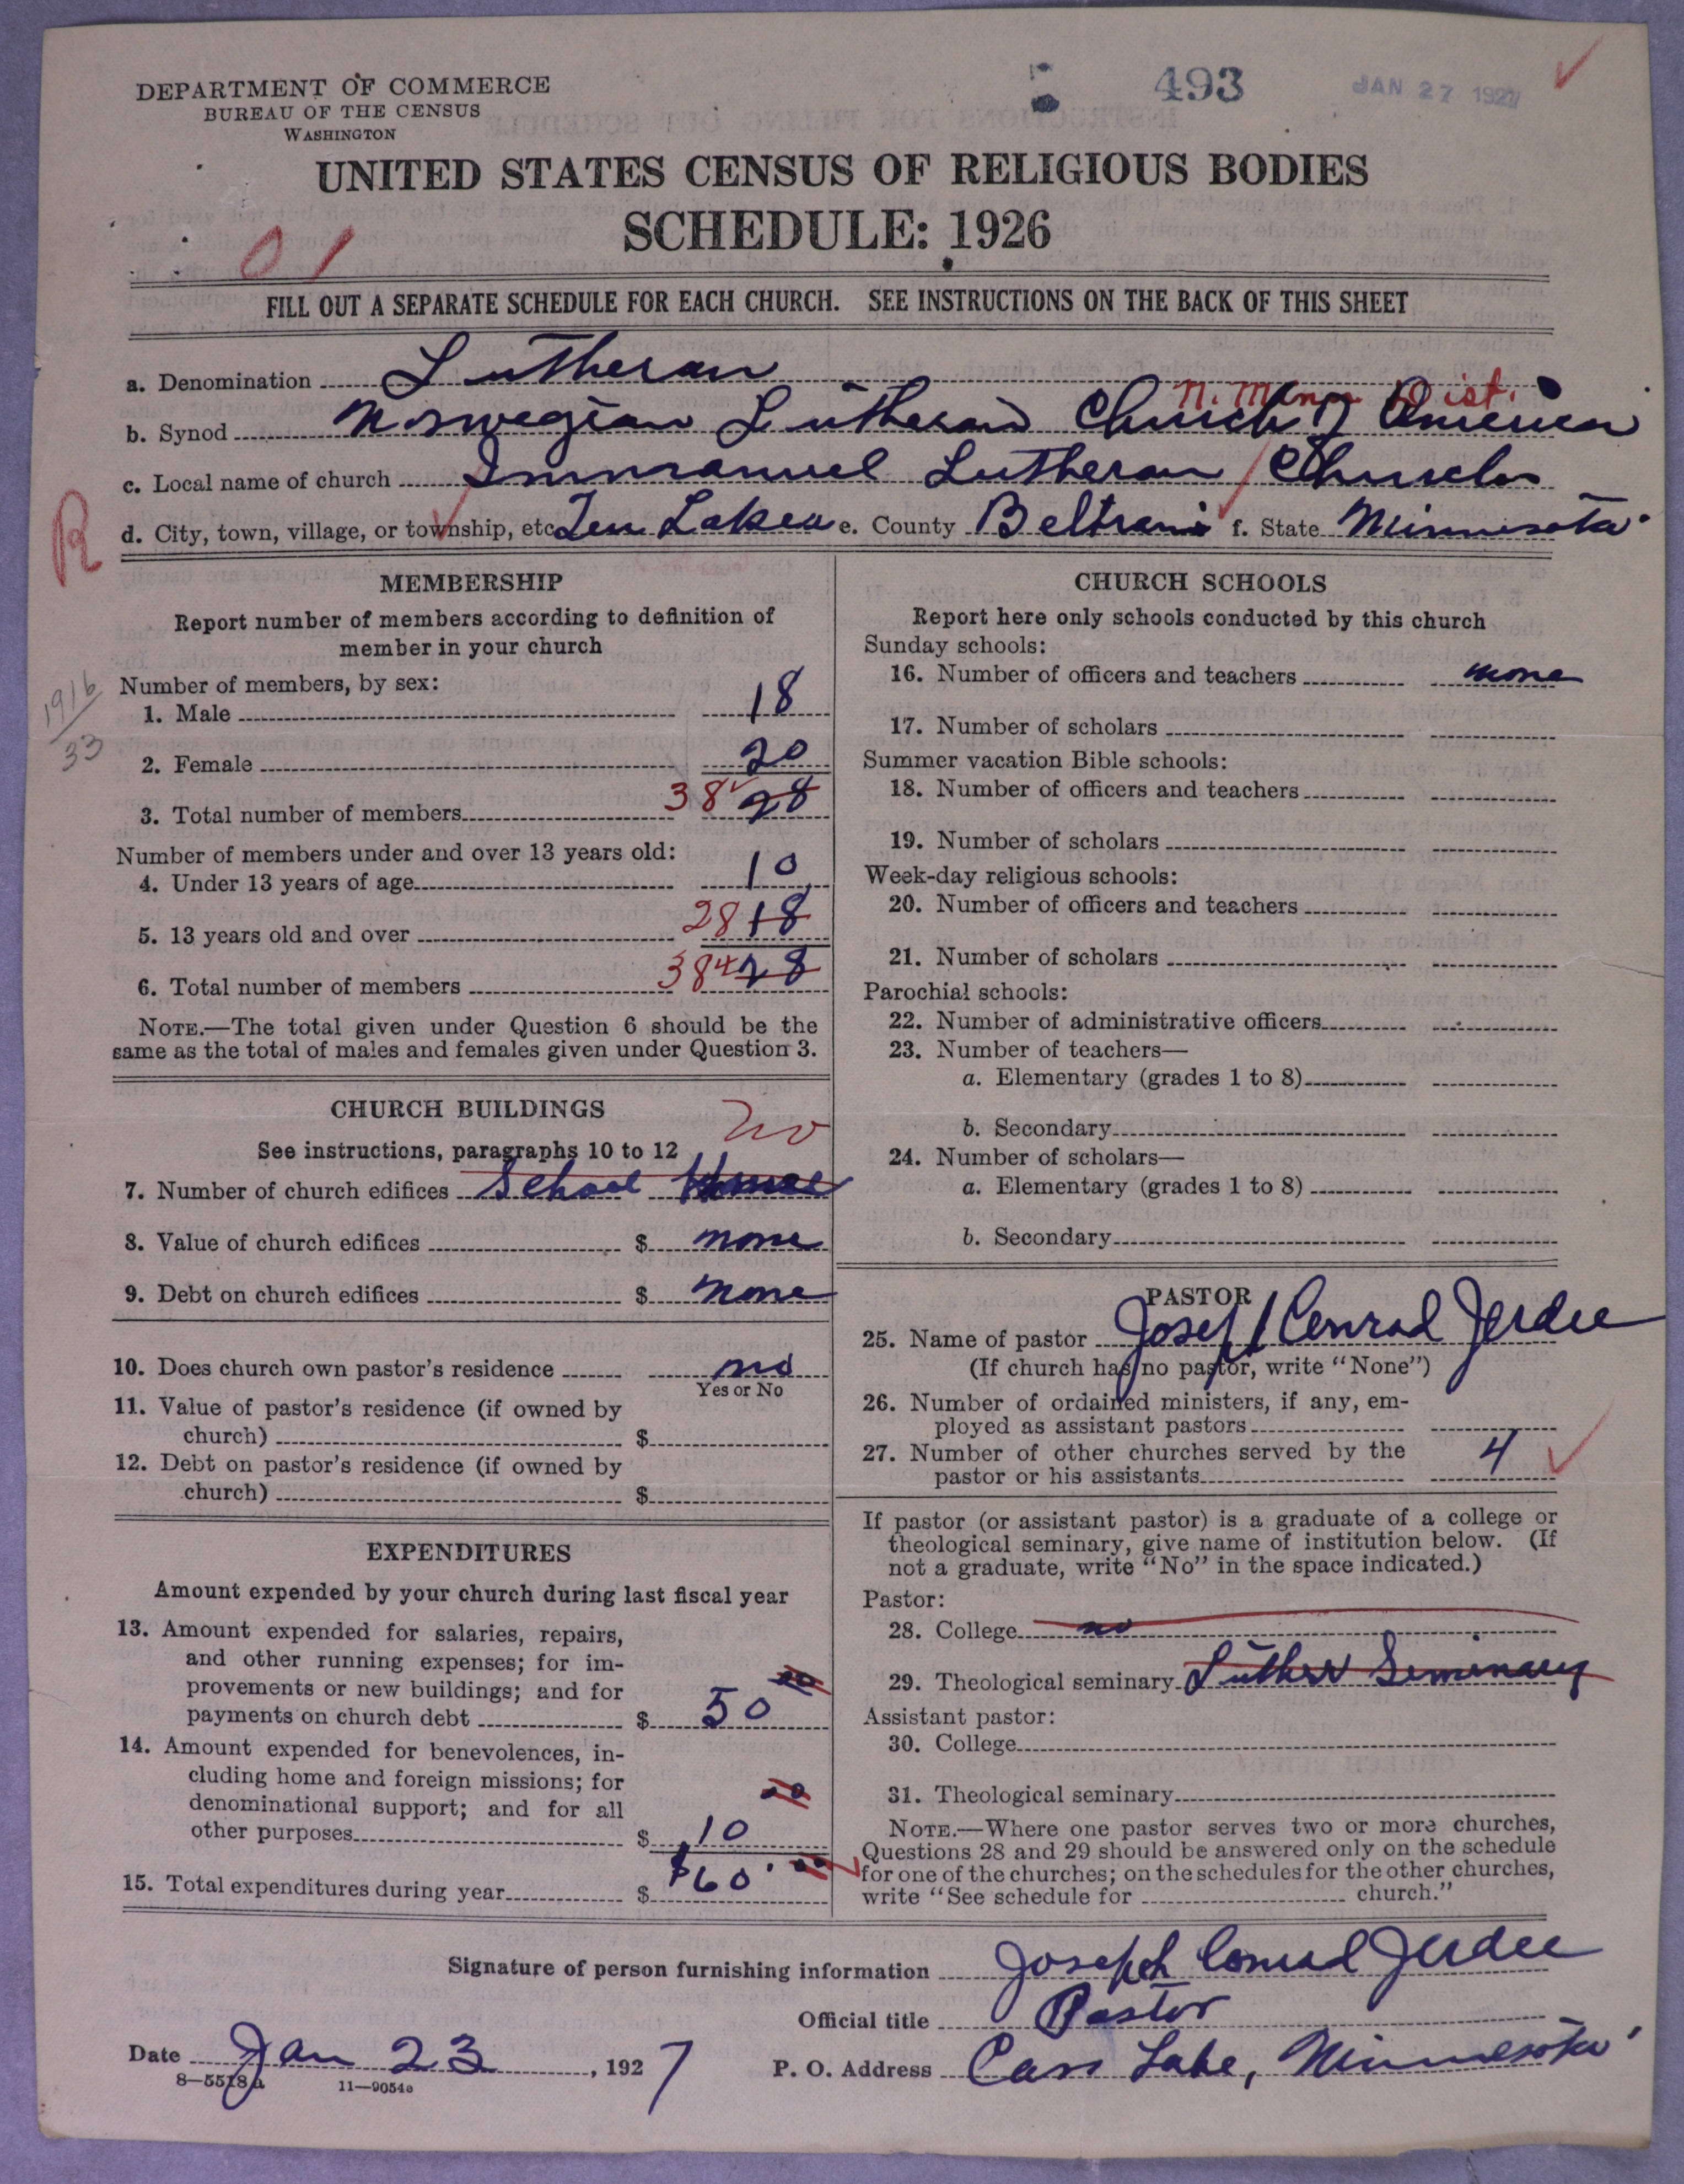 DEPARTMENT OF COMMERCE
BUREAU OF THE CENSUS
WASHINGTON
493
JAN 27 1927
UNITED STATES CENSUS OF RELIGIOUS BODIES
SCHEDULE: 1926
01
FILL OUT A SEPARATE SCHEDULE FOR EACH CHURCH. SEE INSTRUCTIONS ON THE BACK OF THIS SHEET
a. Denomination Lutheran
N. Minn. Dist.
b. Synod Norwegian Lutheran Church of America
c. Local name of church Immanuel Lutheran Church
R
d. City, town, village, or township, etc. Ten Lakes e. County Beltrami f. State Minnesota
MEMBERSHIP
Report number of members according to definition of
member in your church
Number of members, by sex:
1916
33
1. Male 18
2. Female 20
3. Total number of members 38 28
Number of members under and over 13 years old:
4. Under 13 years of age 10
5. 13 years old and over 28 18
6. Total number of members 38 28
NOTE.—The total given under Question 6 should be the
same as the total of males and females given under Question 3.
CHURCH BUILDINGS
See instructions, paragraphs 10 to 12
no
7. Number of church edifices School House
8. Value of church edifices $ none
9. Debt on church edifices $ none
10. Does church own pastor's residence no
Yes or No
11. Value of pastor's residence (if owned by
church) $
12. Debt on pastor's residence (if owned by
church) $
EXPENDITURES
Amount expended by your church during last fiscal year
13. Amount expended for salaries, repairs,
and other running expenses; for im-
provements or new buildings; and for
payments on church debt $ 50 00
14. Amount expended for benevolences, in-
cluding home and foreign missions; for
denominational support; and for all
other purposes $ 10 00
15. Total expenditures during year $ $60.00
CHURCH SCHOOLS
Report here only schools conducted by this church
Sunday schools:
16. Number of officers and teachers none
17. Number of scholars
Summer vacation Bible schools:
18. Number of officers and teachers
19. Number of scholars
Week-day religious schools:
20. Number of officers and teachers
21. Number of scholars
Parochial schools:
22. Number of administrative officers
23. Number of teachers—
a. Elementary (grades 1 to 8)
b. Secondary
24. Number of scholars—
a. Elementary (grades 1 to 8)
b. Secondary
PASTOR
25. Name of pastor Joseph Conrad Jerdee
(If church has no pastor, write "None")
26. Number of ordained ministers, if any, em-
ployed as assistant pastors
27. Number of other churches served by the
pastor or his assistants 4
If pastor (or assistant pastor) is a graduate of a college or
theological seminary, give name of institution below. (If
not a graduate, write "No" in the space indicated.)
Pastor:
28. College no
29. Theological seminary Luther Seminary
Assistant pastor:
30. College
31. Theological seminary
NOTE.—Where one pastor serves two or more churches,
Questions 28 and 29 should be answered only on the schedule
for one of the churches; on the schedules for the other churches,
write "See schedule for church."
Signature of person furnishing information Joseph Conrad Jerdee
Official title Pastor
Date Jan 23, 1927
P. O. Address Cass Lake, Minnesota
8—5518a
11—9054a